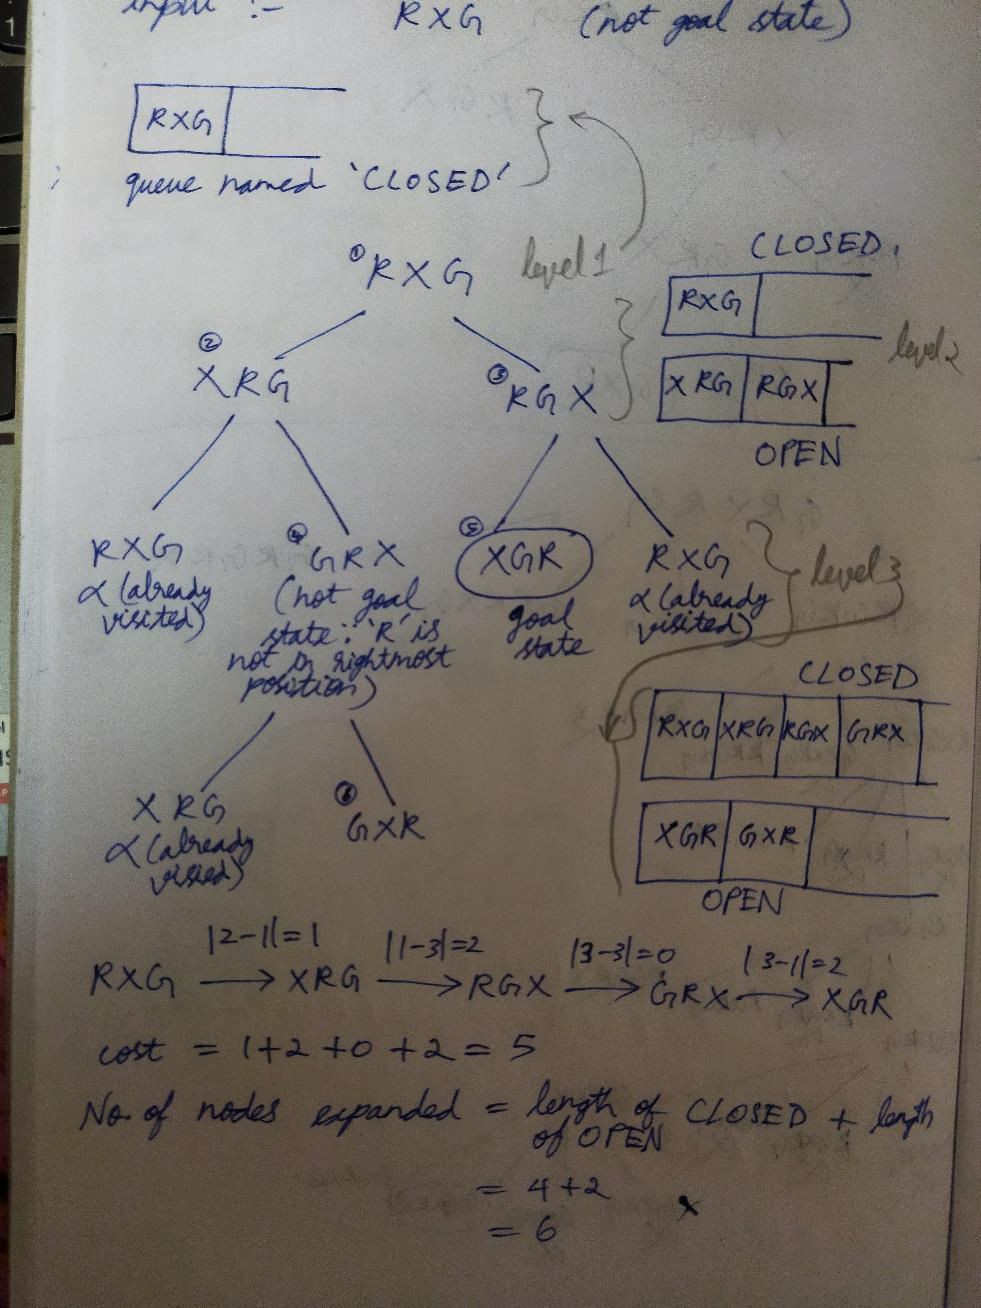 input :- RXG (not goal state)
RXG
queue named 'CLOSED'
① RXG level 1
CLOSED.
RXG
level 2
② XRG
③ RGX
XRG RGX
OPEN
RXG
α (already
visited)
④ GRX
(not goal
state ∵ 'R' is
not in rightmost
position)
⑤ XGR
goal
state
RXG
α (already
visited)
level 3
CLOSED
RXG XRG RGX GRX
XRG
α (already
visied)
⑥ GXR
XGR GXR
OPEN
|2-1|=1 |1-3|=2 |3-3|=0 |3-1|=2
RXG → XRG → RGX → GRX → XGR
cost = 1+2+0+2 = 5
No. of nodes expanded = length of CLOSED + length
of OPEN
= 4+2
= 6